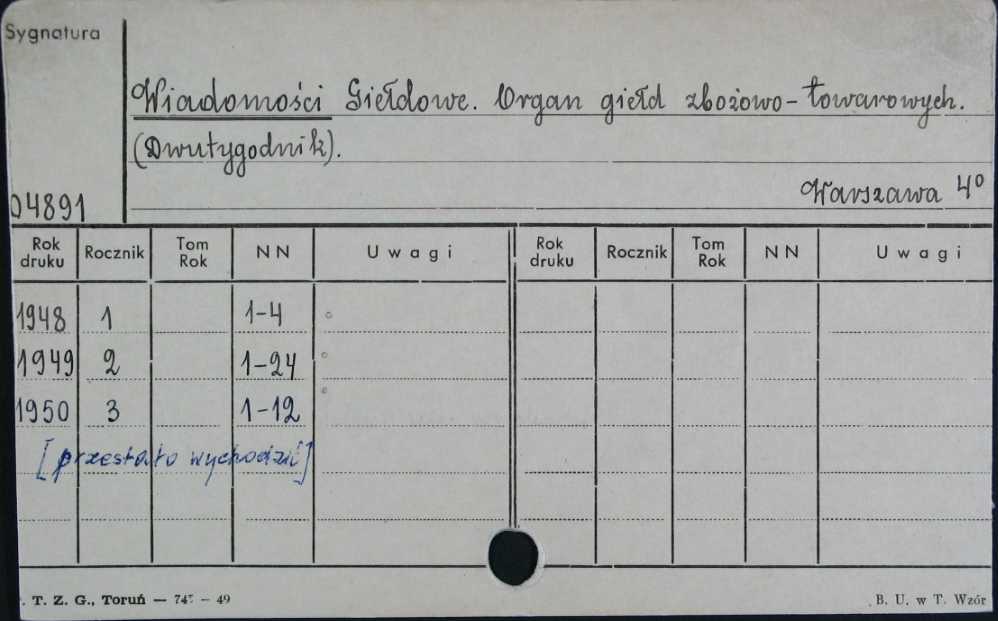 Sygnatura
Wiadomości Giełdowe. Organ giełd zbożowo-towarowych.
(Dwutygodnik).
Warszawa 4º
04891
Rok druku Rocznik Tom Rok NN Uwagi Rok druku Rocznik Tom Rok NN Uwagi
1948 1 1-4
1949 2 1-24
1950 3 1-12
[przestało wychodzić]
. T. Z. G., Toruń — 49
B. U. w T. Wzór